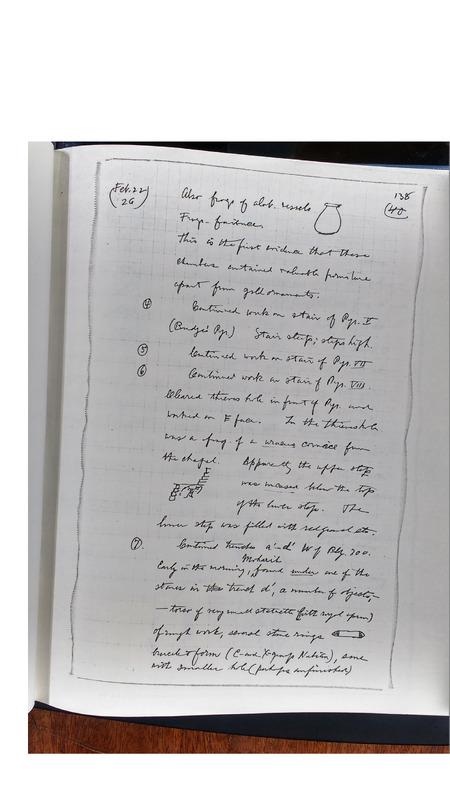 Feb. 22
26
138
40
Also frags of alab. vessels
Frags - faience.
This is the first evidence that these
chambers contained valuable furniture
apart from gold ornaments.
④ Continued work on stair of Pyr. V
(Budge's Pyr.) Stair steep; steps high.
⑤ Continued work on stair of Pyr. VII
⑥ Continued work on stair of Pyr. VIII.
Cleared thieves hole in front of Pyr. and
worked on E face. In the thieves hole
was a frag. of a uraeus cornice from
the chapel. Apparently the upper step
was incised below the top
of the lower step. The
lower step was filled with red gravel etc.
⑦. Continued trenches a'-d' W of Bldg. 700.
Early in the morning, found under one of the
stones in the trench d', a number of objects, -
- torso of very small statuette (with royal apron)
of rough work, several stone rings
bracelet form (C- and X-group Nubian), some
with smaller hole (perhaps unfinished)